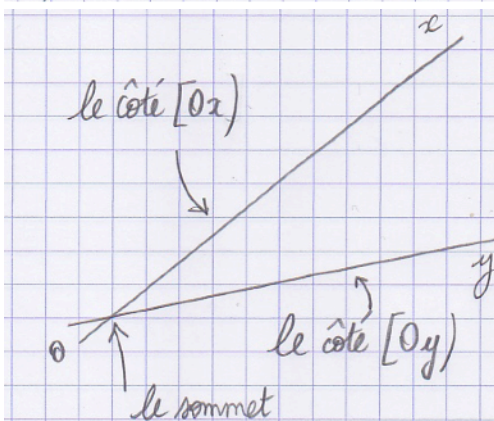 x
le côté [Ox)
y
le côté [Oy)
O
le sommet